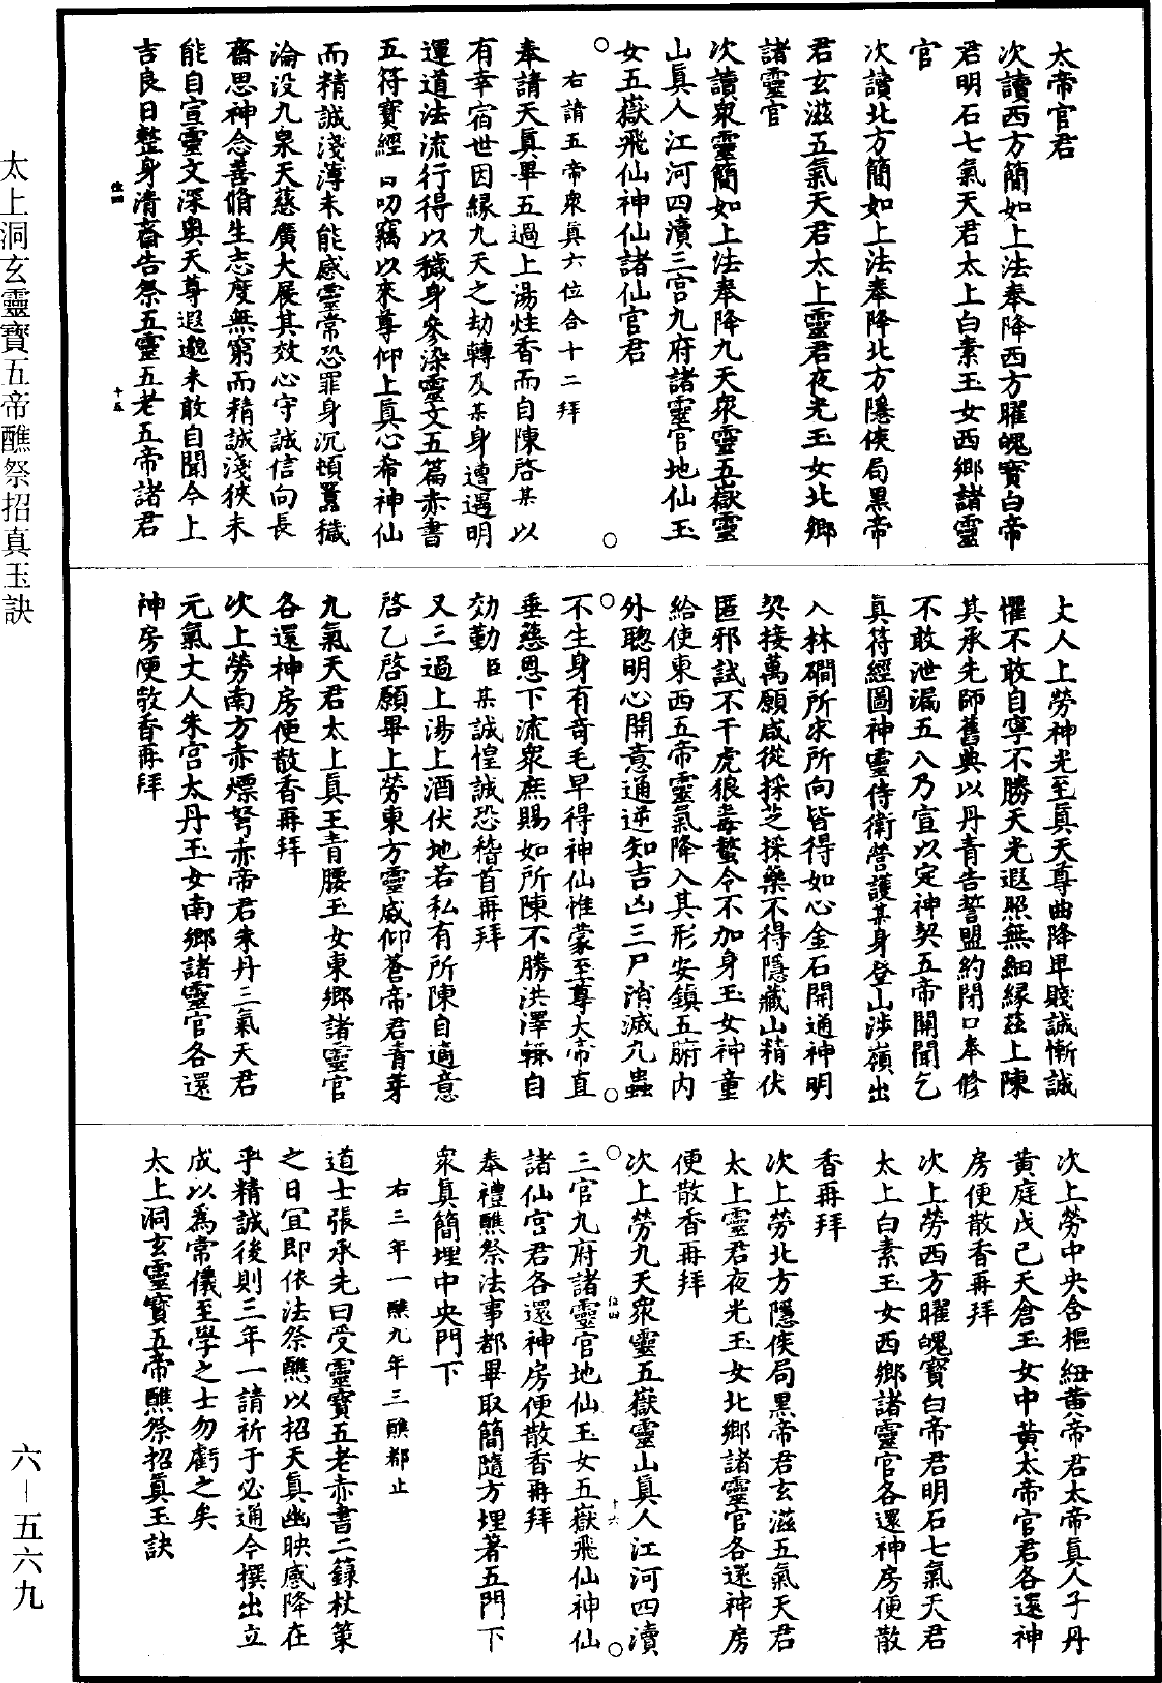 太帝官君
次讀西方簡如上法奉降西方曜魄寶白帝
君明石七氣天君太上白素玉女西鄉諸靈
官
次讀北方簡如上法奉降北方隱侯局黑帝
君玄滋五氣天君太上靈君夜光玉女北鄉
諸靈官
次讀衆靈簡如上法奉降九天衆靈五嶽靈
山眞人江河四瀆三宫九府諸靈官地仙玉
女五嶽飛仙神仙諸仙官君
右請五帝衆真六位合十二拜
奉請天眞畢五過上湯炷香而自陳啓某以
有幸宿世因縁九天之劫轉及某身遭遇明
運道法流行得以穢身參染靈文五篇赤書
五符寶經曰叨竊以來尊仰上眞心希神仙
而精誠淺薄未能感靈常恐罪身沉頓囂穢
淪没九泉天慈廣大展其效心守誠信向長
齋思神念善脩生志度無窮而精誠淺狹未
能自宣靈文深奥天尊遐邈未敢自聞今上
吉良日整身清齋告祭五靈五老五帝諸君
丈人上勞神光至眞天尊曲降卑賤誠慚誠
懼不敢自寧不勝天光遐照無細縁茲上陳
其承先師舊典以丹青告誓盟約閉口奉修
不敢泄漏五八乃宣以定神契五帝開聞乞
真符經圖神靈侍衛營護某身登山涉嶺出
入林磵所求所向皆得如心金石開通神明
契接萬願咸從採芝採藥不得隱藏山精伏
匿邪試不干虎狼毒螫令不加身玉女神童
給使東西五帝靈氣降入其形安鎮五腑内
外聰明心開意通逆知吉凶三尸消滅九蟲
不生身有奇毛早得神仙惟蒙至尊大帝直
垂慈恩下流衆庶賜如所陳不勝洪澤輙自
効勤臣某誠惶誠恐稽首再拜
又三過上湯上酒伏地若私有所陳自適意
啓乙啓願畢上勞東方靈威仰蒼帝君青芽
九氣天君太上眞王青腰玉女東鄉諸靈官
各還神房便散香再拜
次上勞南方赤熛弩赤帝君朱丹三氣天君
元氣丈人朱宫太丹玉女南鄉諸靈官各還
神房便散香再拜
次上勞中央含樞紐黄帝君太帝眞人子丹
黄庭戊己天倉玉女中黄太帝官君各還神
房便散香再拜
次上勞西方曜魄寶白帝君明石七氣天君
太上白素玉女西鄉諸靈官各還神房便散
香再拜
次上勞北方隱侯局黑帝君玄滋五氣天君
太上靈君夜光玉女北鄉諸靈官各還神房
便散香再拜
次上勞九天衆靈五嶽靈山眞人江河四瀆
三官九府諸靈官地仙玉女五嶽飛仙神仙
諸仙宫君各還神房便散香再拜
奉禮醮祭法事都畢取簡隨方埋著五門下
衆眞簡埋中央門下
右三年一醮九年三醮都止
道士張承先曰受靈寶五老赤書二籙杖策
之日宜即依法祭醮以招天真幽映感降在
乎精誠後則三年一請祈于必通今撰出立
成以爲常儀至學之士勿虧之矣
太上洞玄靈寶五帝醮祭招眞玉訣
太上洞玄靈寶五帝醮祭招真玉訣
六－五六九